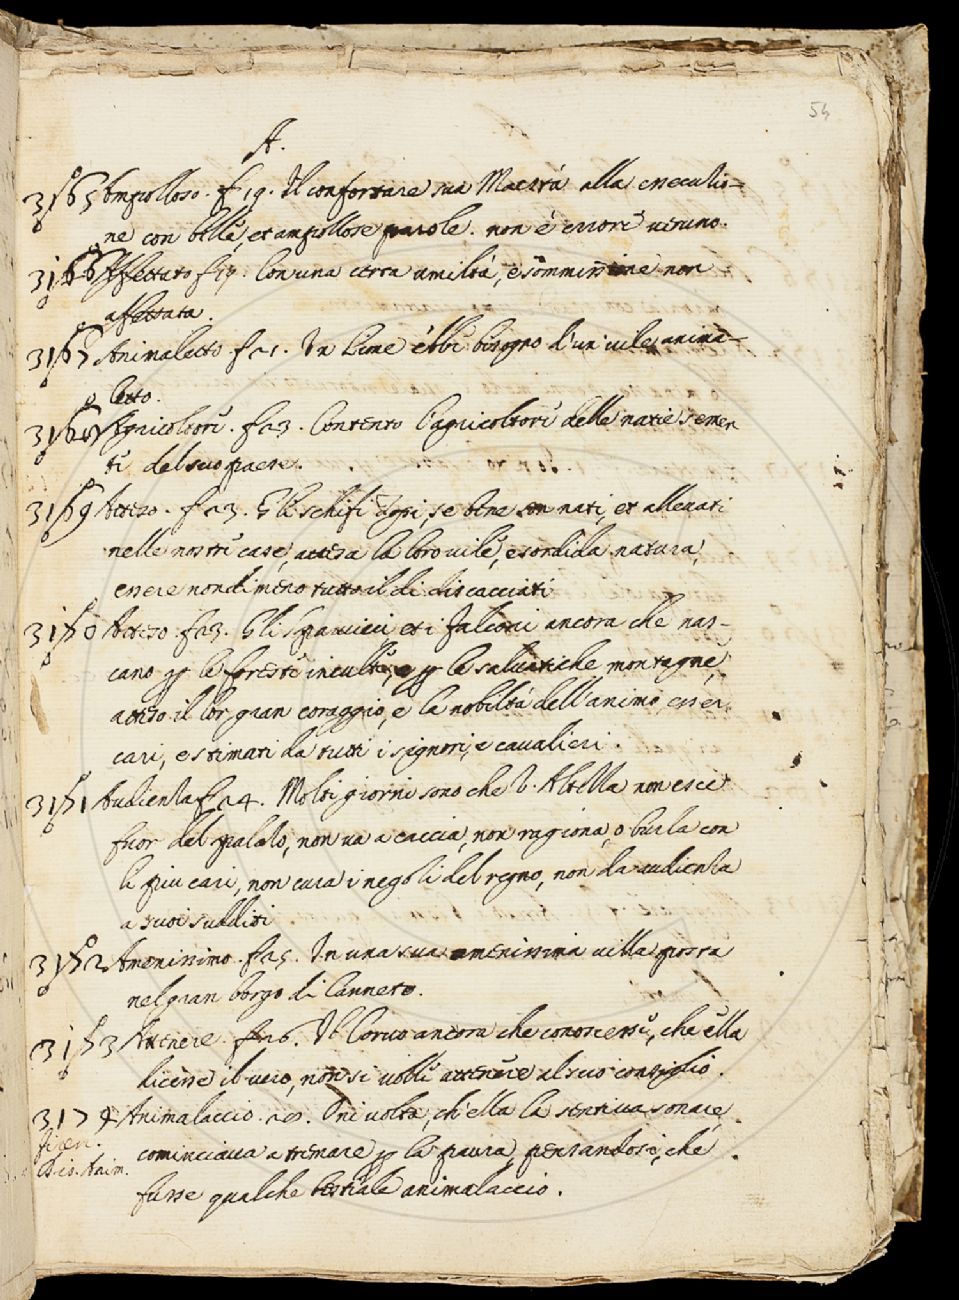 54
A.
3165 Ampolloso. f. 19. Il confortare sua Maestà alla essecutio=
ne con belle, et ampollose parole. non è errore veruno.
3166 Affettato f. 19. Con una certa umiltà, e sommissione non
affettata.
3167 Animaletto f. 21. In Lime ebbi bisogno d'un vile anima=
letto.
3168 Agricoltori. f. 23. Contento l'agricoltori delle natie semen
ti del suo paese.
3169 Atteso. f. 23. Gli schifi topi, se bene son nati, et allevati
nelle nostre case, attesa la loro vile, e sordida natura,
essere nondimeno tutto il dì discacciati
3170 Atteso f. 23. Gli Sparvieri et i falconi ancora che nas-
cano per le foreste inculte, e per le salvatiche montagne,
atteso il lor gran coraggio, e la nobiltà dell'animo, esser
cari, e stimati da tutti i signori, e cavalieri
3171 Audienza f. 24. Molti giorni sono che V. Altezza non esce
fuor del palazo, non va a caccia, non ragiona, o burla con
li piu cari, non cura i negozi del regno, non da audienza
a suoi sudditi
3172 Amenissimo. f. 25. In una sua amenissima villa posta
nel gran borgo di Canneto.
3173 Attenere. f. 26. Il Corvo ancora che conoscesse, che ella
dicesse il vero, non si volle attenere al suo consiglio.
3174 Animalaccio. 28. Ogni volta, ch'ella la sentiva sonare,
cominciava a tremare per la paura, pensandosi, che
fusse qualche bestiale animalaccio.
Firen.
Dis. Anim.